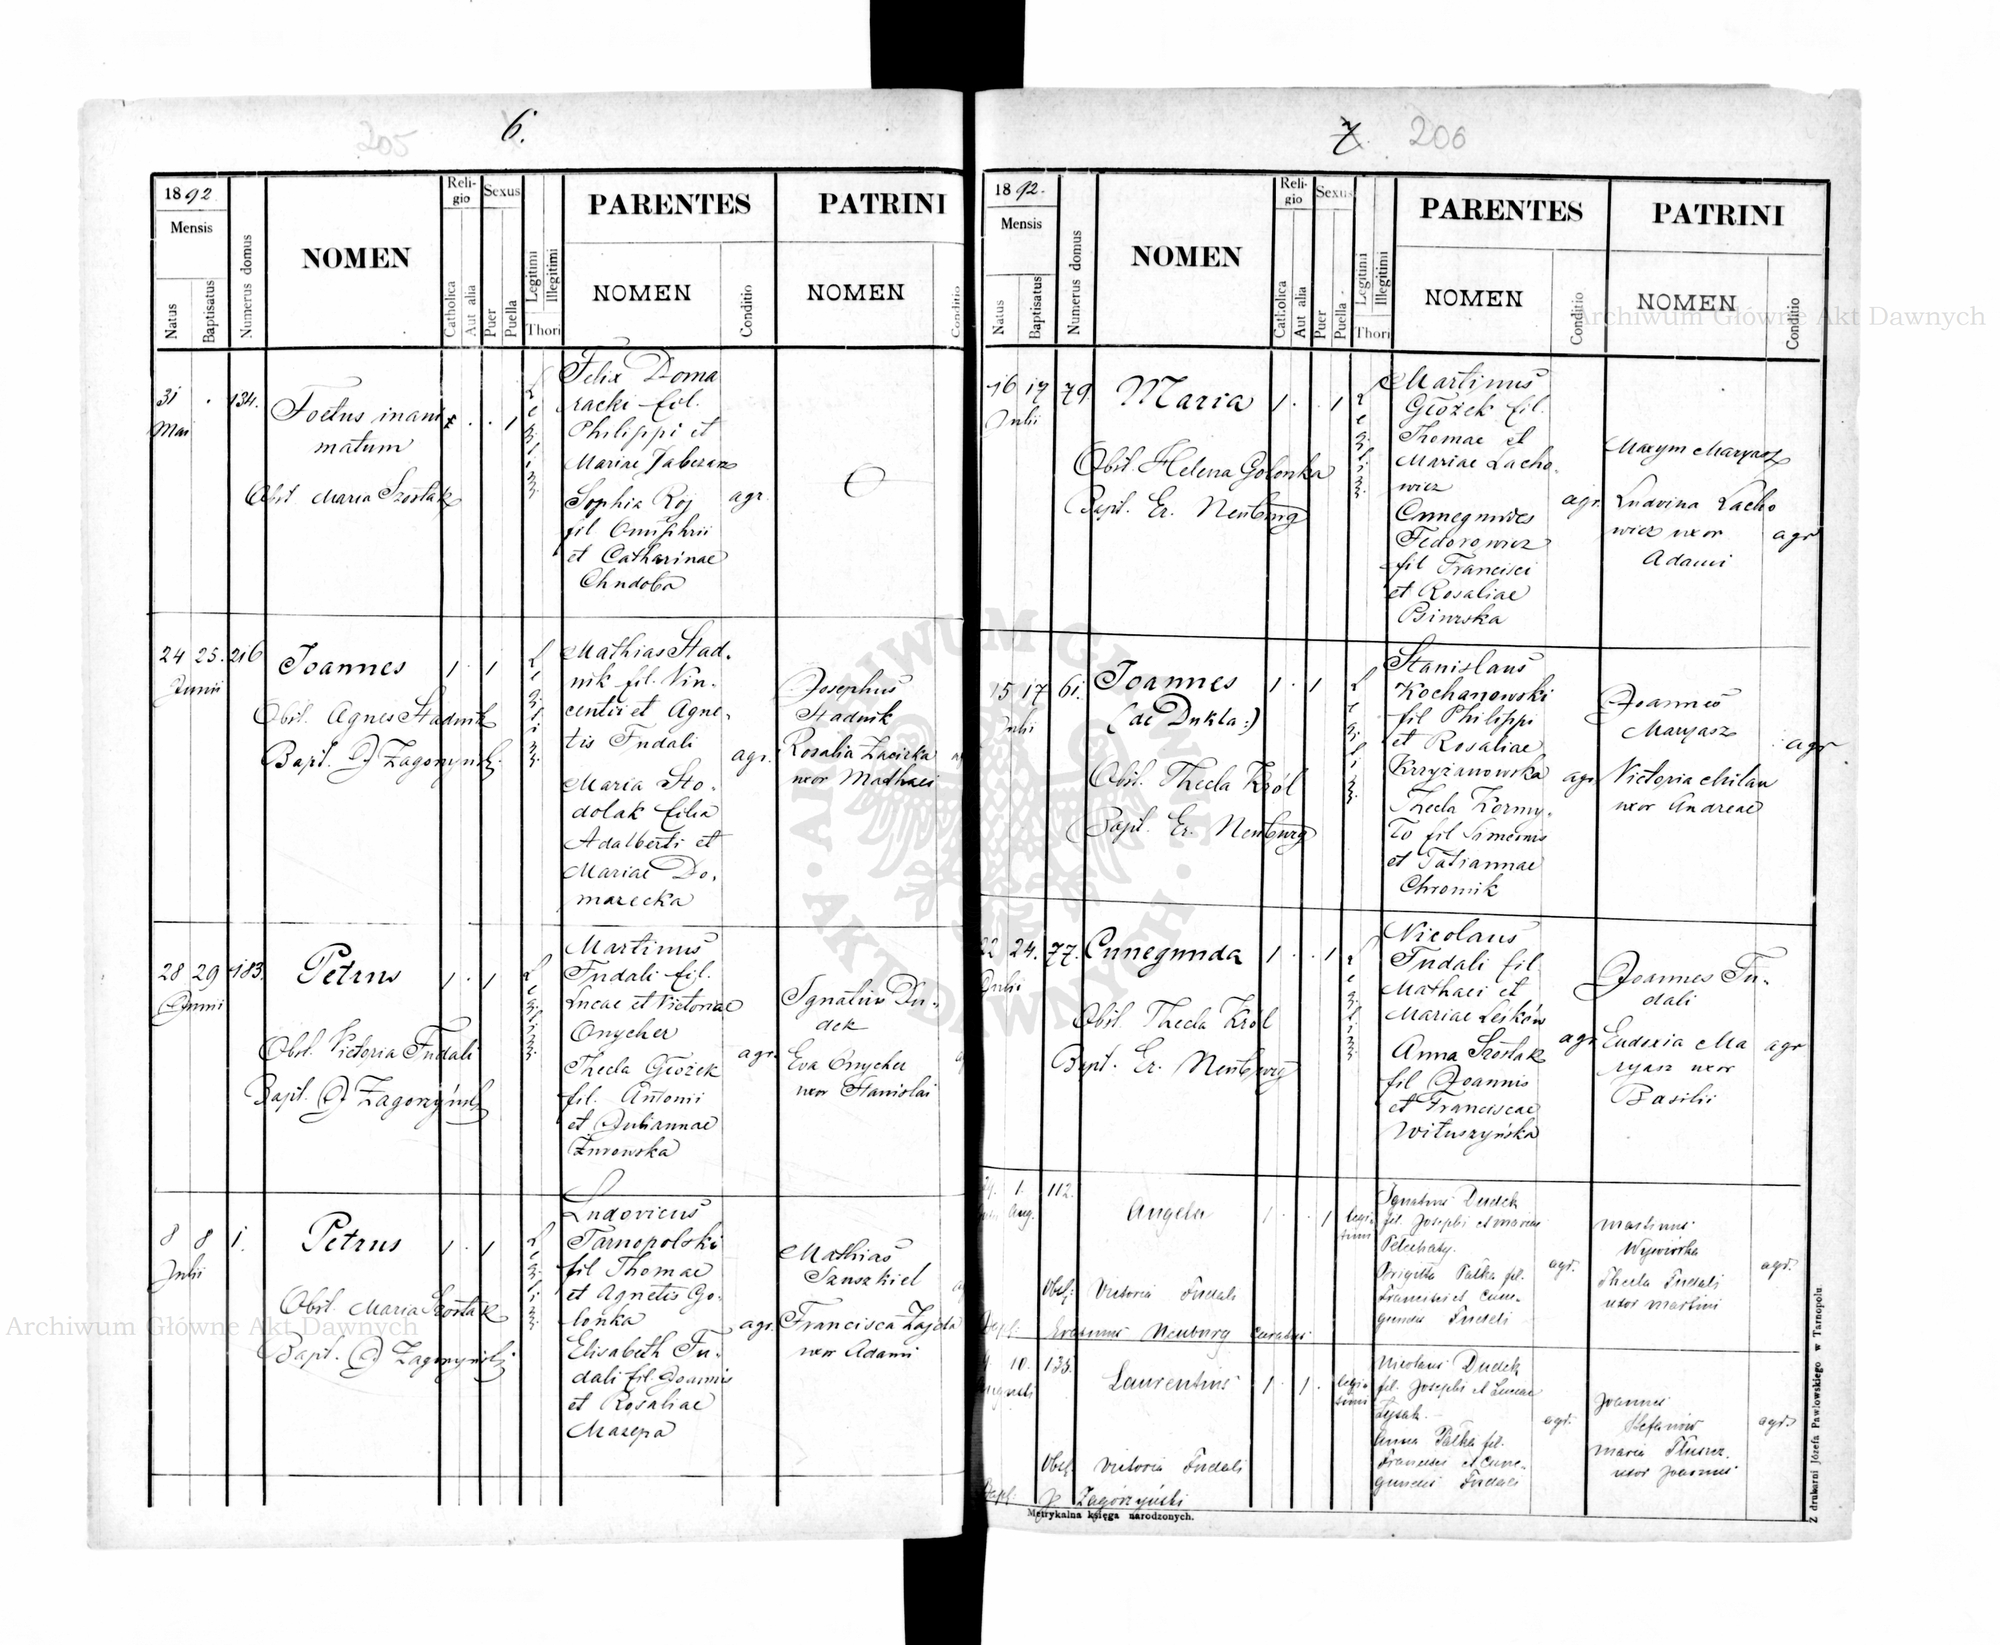 205
6.
1892
Mensis
Natus
Baptisatus
Numerus domus
NOMEN
Religio
Catholica
Aut alia
Sexus
Puer
Puella
Legitimi
Illegitimi
Thori
PARENTES
NOMEN
Conditio
PATRINI
NOMEN
Conditio
31 Mai
134.
Foetus inani
matum
Obst. Maria Szostak
Felix Doma
racki fil.
Philippi et
Mariae
Sophia Roj
fil
et Catharinae
Chudoba
agr.
24 25. 216
Junii
Joannes
Obst. Agnes Stadnik
Bapt. J Zagorzyński
Mathias Stad-
nik fil. Vin-
centii et Agne-
tis Fudali
Maria Sto-
dolak filia
Adalberti et
Mariae Do-
marecka
agr.
Josephus
Stadnik
Rosalia Zacirka
uxor Mathaei
28 29 183.
Junii
Petrus
Obst. Victoria Fudali
Bapt. J Zagorzyński
Martinus
Fudali fil.
Lucae et Victoriae
Onycher
Thecla Głożek
fil. Antonii
et Juliannae
Żurowska
agr.
Ignatius Du-
dek
Eva Onycher
uxor Stanislai
8 8 1.
Julii
Petrus
Obst. Maria Szostak
Bapt. J Zagorzyński
Ludovicus
Tarnopolski
fil Thomae
et Agnetis Go-
lonka
Elisabeth Fu-
dali fil. Joannis
et Rosaliae
Mazepa
agr.
Mathias
Sanszkiel
Francisca Zajda
uxor Adami
7.
206
1892.
Mensis
Natus
Baptisatus
Numerus domus
NOMEN
Religio
Catholica
Aut alia
Sexus
Puer
Puella
Legitimi
Illegitimi
Thori
PARENTES
NOMEN
Conditio
PATRINI
NOMEN
Conditio
16 17 79
Julii
Maria
Obst. Helena Golonka
Bapt. Er. Neuburg
Martinus
Głożek fil.
Thomae et
Mariae Lacho-
wicz
Cunegundes
Fedorowicz
fil Francisci
et Rosaliae
agr.
Maxym Maryasz
Ludvina Lacho
wicz uxor
Adami
agr
15 17 61.
Julii
Joannes
(de Dukla:)
Obst. Thecla Król
Bapt. Er. Neuburg
Stanislaus
Kochanowski
fil Philippi
et Rosaliae
Krzyżanowska
Thecla Kormy-
ło fil Simeonis
et Tatiannae
Chromik
agr.
Joannes
Maryasz
Victoria Milan
uxor Andreae
agr
22 24. 77.
Julii
Cunegunda
Obst. Thecla Król
Bapt. Er. Neuburg
Nicolaus
Fudali fil
Mathaei et
Mariae Leśków
Anna Szostak
fil Joannis
et Franciscae
Wituszyńska
agr
Joannes Fu-
dali
Eudoxia Ma
ryasz uxor
Basilii
agr
1. 112.
Aug.
Angela
legi-
timi
Obst: Victoria Fudali
Bapt: Erasmus Neuburg Curatus
Ignatius Dudek
fil. Josephi et Mariae
Pelechaty.
Brigitta Pałka fil.
Francisci et Cune-
gundis Fudali
agr.
Martinus
Wywiórka
Thecla Fudali
uxor Martini
agr.
10. 135.
Augusti
Laurentius
legi-
timi
Obst. Victoria Fudali
Bapt: J. Zagórzyński
Nicolaus Dudek
fil. Josephi et Luciae
Łysak.
Anna Pałka fil.
Francisci et Cune-
gundis Fudali
agr.
Joannes
Stefanów
Maria Tłuszcz
uxor Joannis
agr.
Metrykalna księga narodzonych.
Z drukarni Józefa Pawłowskiego w Tarnopolu
Archiwum Główne Akt Dawnych
Archiwum Główne Akt Dawnych
ARCHIWUM GŁÓWNE AKT DAWNYCH